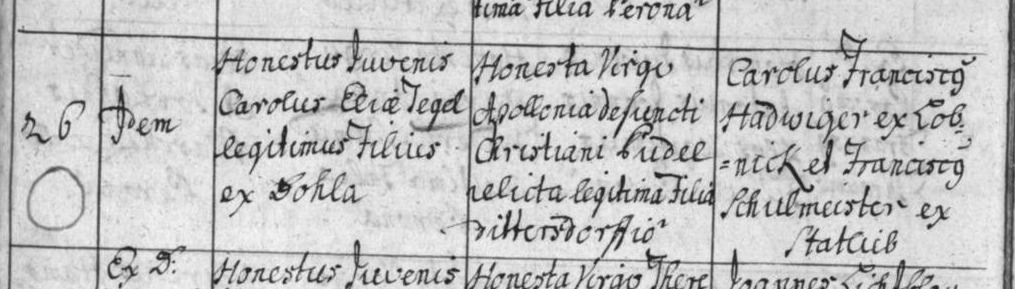 tima Filia Perona
26
Idem
Honestus Juvenis
Carolus Eliæ Tegel
legitimus Filius
ex Dohla
Honesta Virgo
Apollonia defuncti
Christiani Pudel
relicta legitima Filia
Dittersdorffio
Carolus Franciscq
Hadwiger ex Lob=
=nick et Franciscq
Schulmeister ex
Statlieb
Ex D:
Honestus Juvenis
Honesta Virgo There
Joannes